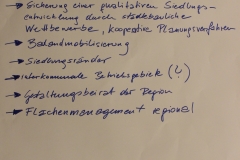 → Sicherung einer qualitativen Siedlungs-
entwicklung durch städtebauliche
Wettbewerbe, kooperative Planungsverfahren
→ Baulandmobilisierung
→ Siedlungsränder
→ Interkommunale Betriebsgebiete
→ Gestaltungsbeirat der Region
→ Flächenmanagement regional